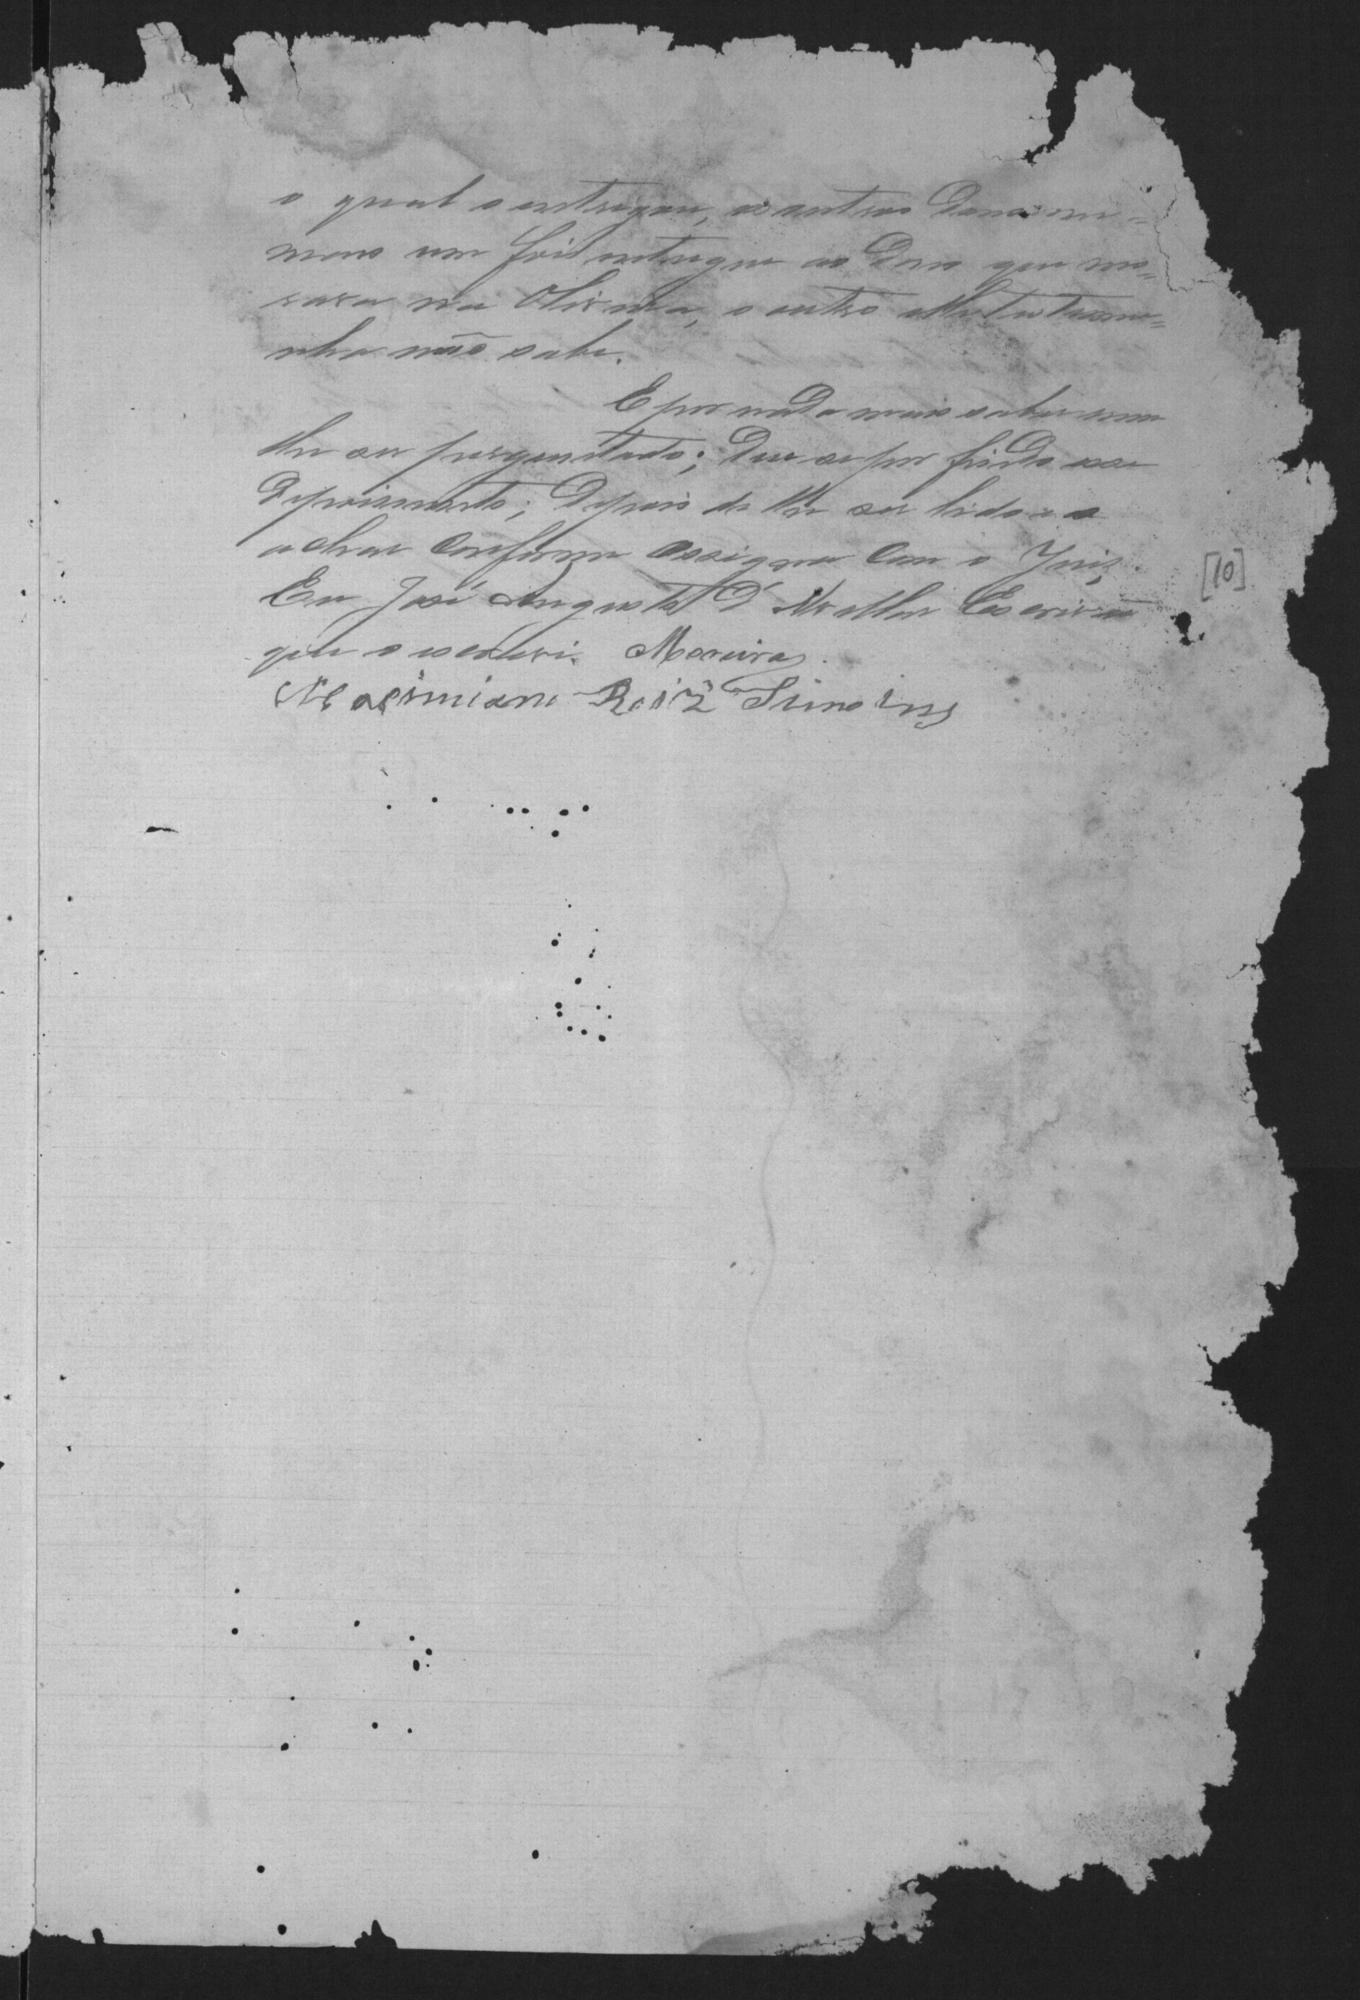 o qual o entregou, os outros Dous me-
nos um foi entregue ao Dono que mo-
rava na Oliveira, o outro elle testemu-
nha não sabe.
E por nada mais saber nem
lhe ser perguntado; Deu se por findo esse
Depoimento; Depois de lhe ser lido e o
achar Conforme Assigna Com o Juiz.
Eu José Augusto D' Escrivão
que o escrevi. Moreira
Maximiano Roiz Simoens
[10]